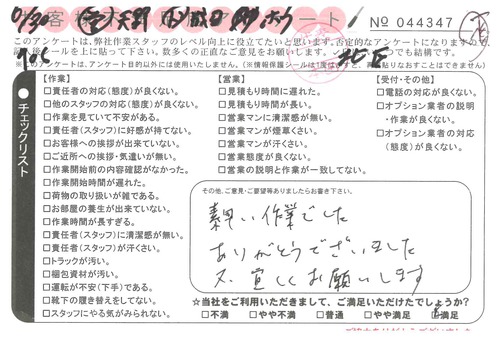 9/30
お客様アンケート
No 044347
このアンケートは、弊社作業スタッフのレベル向上に役立てたいと思います。否定的なアンケートになりますので、
記入後シールを上に貼って下さい。数多くの正直なご意見をお願いします。
※このアンケートは、アンケート目的以外には使用いたしません。
チェックリスト
【作業】
□責任者の対応(態度)が良くない。
□他のスタッフの対応(態度)が良くない。
□作業を見ていて不安がある。
□責任者(スタッフ)に好感が持てない。
□お客様への挨拶が出来ていない。
□ご近所への挨拶・気遣いが無い。
□作業開始前の内容確認がなかった。
□作業開始時間が遅れた。
□荷物の取り扱いが雑である。
□お部屋の養生が出来ていない。
□作業時間が長すぎる。
□責任者(スタッフ)に清潔感が無い。
□責任者(スタッフ)が汗くさい。
□トラックが汚い。
□梱包資材が汚い。
□運転が不安(下手)である。
□靴下の履き替えをしてない。
□スタッフにやる気がみられない。
【営業】
□見積もり時間に遅れた。
□見積もり時間が長い。
□営業マンに清潔感が無い。
□営業マンが煙草くさい。
□営業マンが汗くさい。
□営業態度が良くない。
□営業の説明と作業が一致してない。
【受付・その他】
□電話の対応が良くない。
□オプション業者の説明
・作業が良くない。
□オプション業者の対応
(態度)が良くない。
その他、ご意見・ご要望等ありましたらお書き下さい。
素早い作業でした
ありがとうございました
又、宜しくお願いします
☆当社をご利用いただきまして、ご満足いただけたでしょうか?
□不満 □やや不満 □普通 □やや満足 □満足